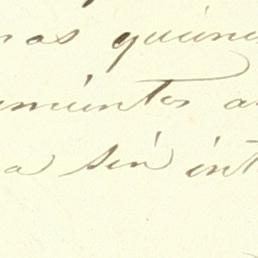 nas quinc
imientos a
a sin int